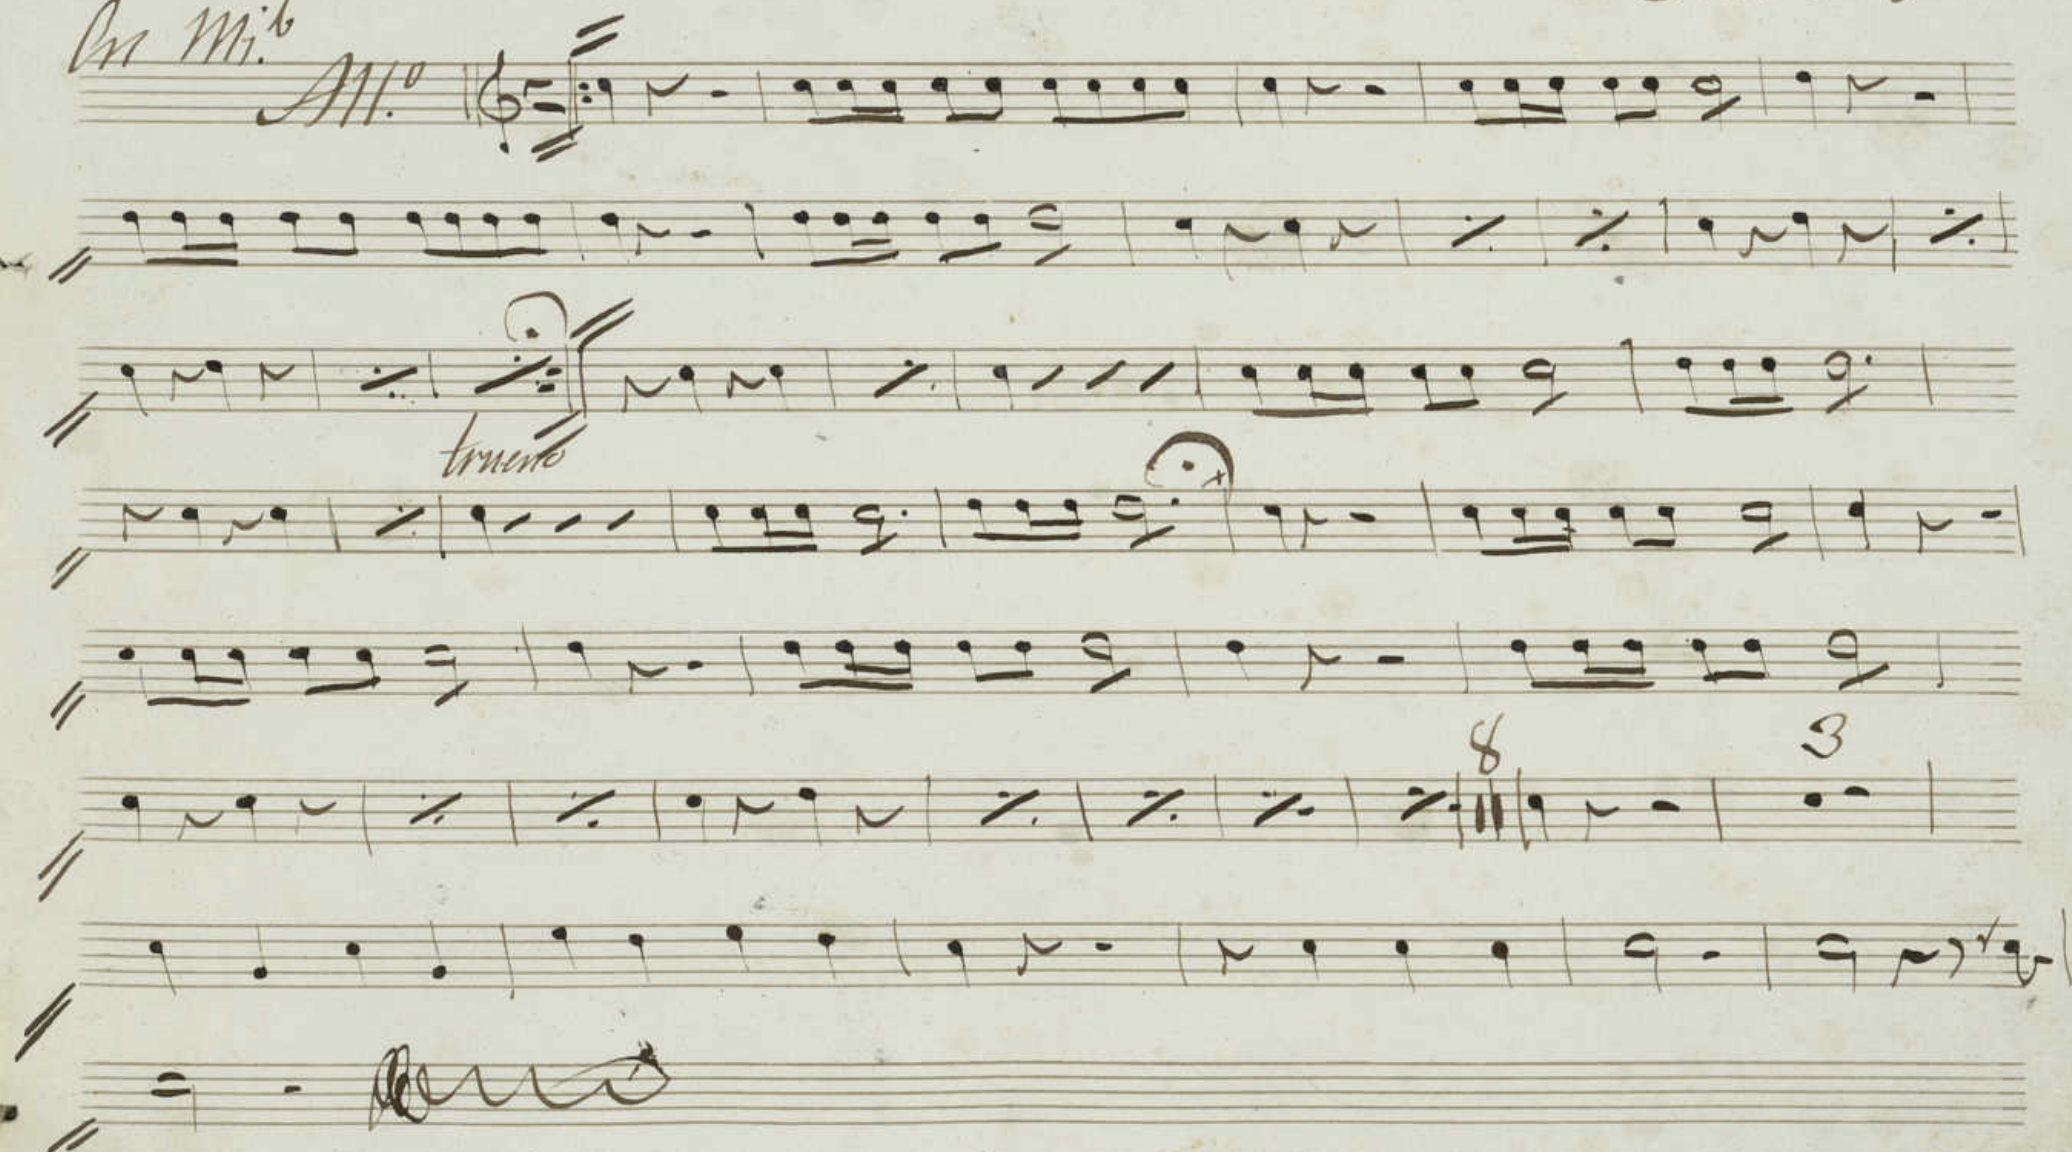 En Mi.b
All.o
trueno
8
3